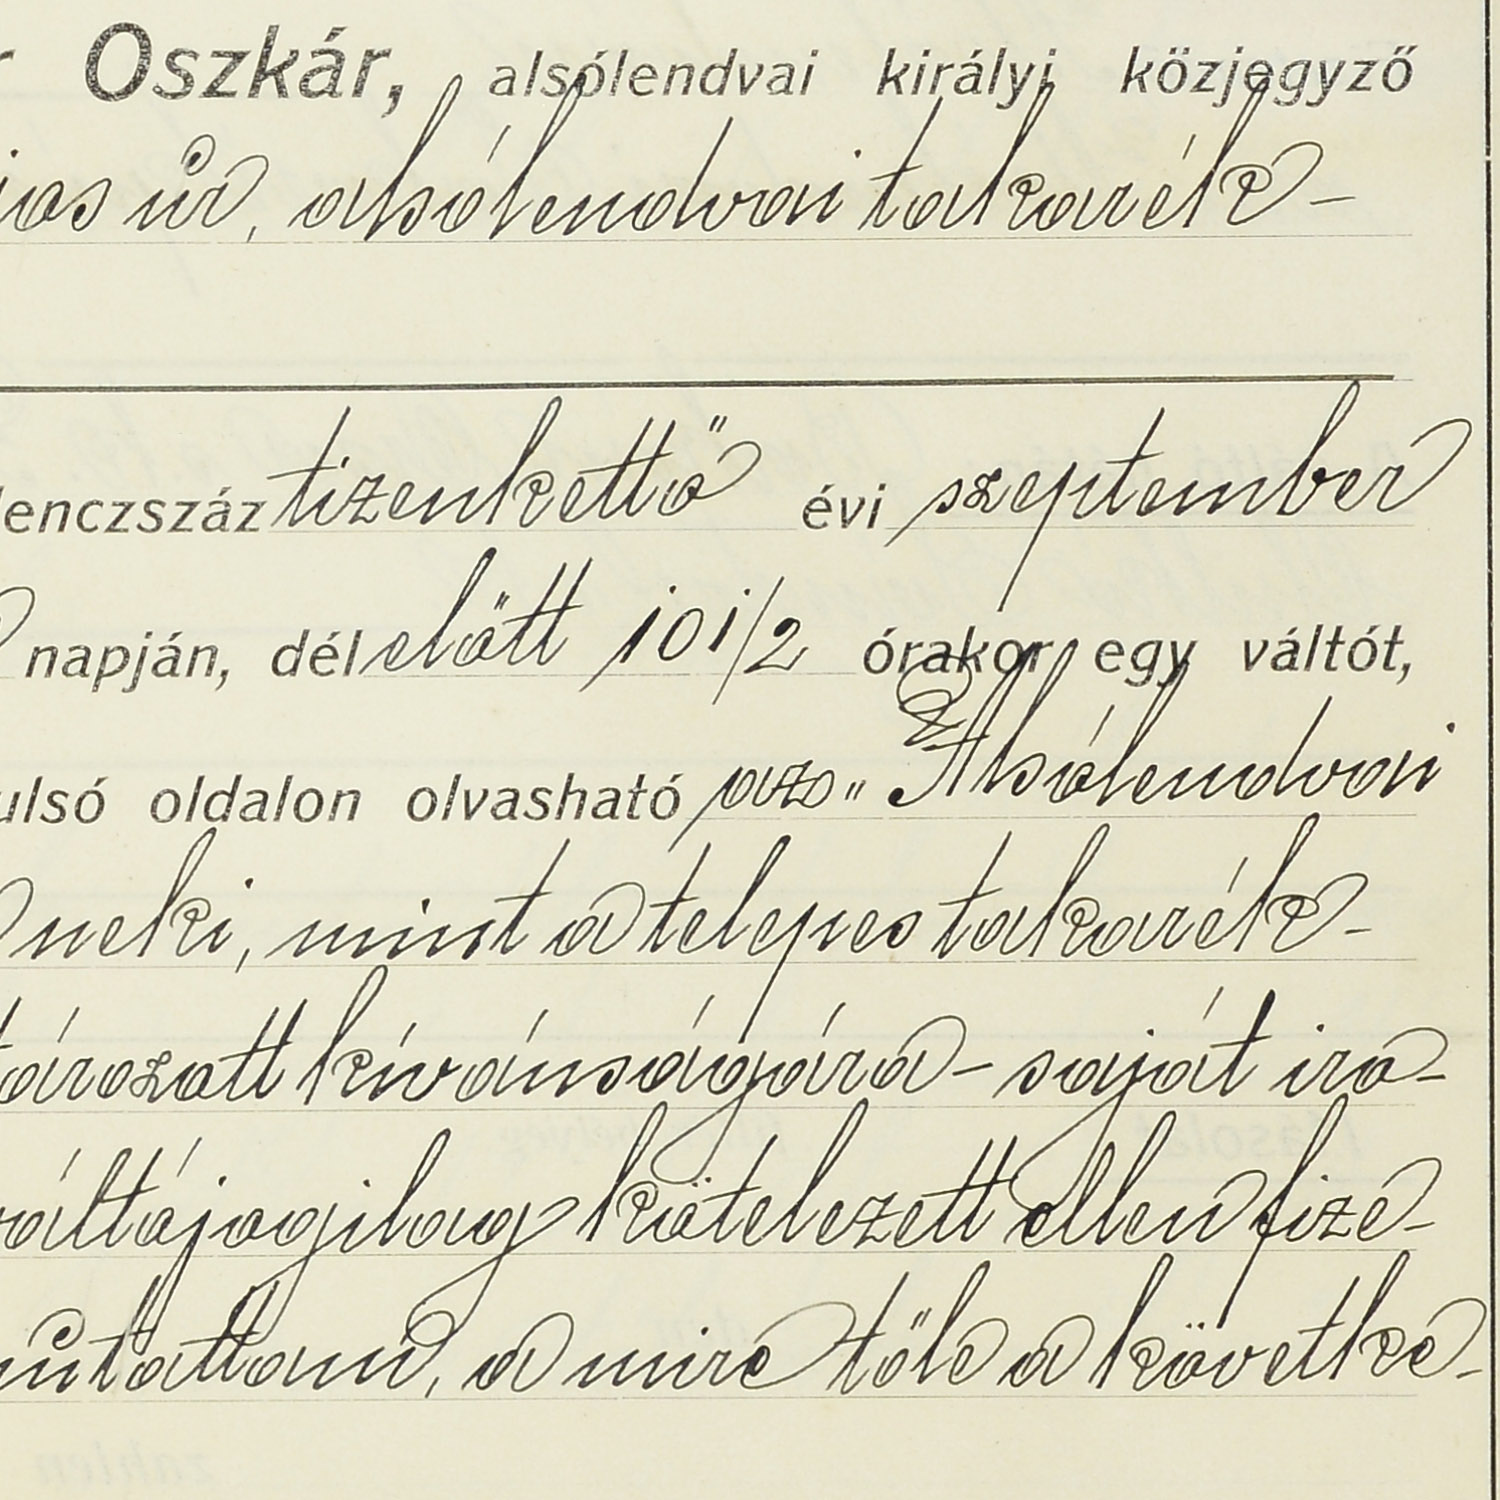 r Oszkár, alsólendvai királyi közjegyző
jas úr, alsólendvai takarék-
lenczszáz tizenkettő évi szeptember
napján, dél előtt 10 1/2 órakor egy váltót,
ulsó oldalon olvasható az „Alsólendvai
neki, mint a telepes takarék-
tározatt kívánságára - saját iro-
váltójogilag kötelezett ellen fize-
mutattam, a mire tőle a követke-